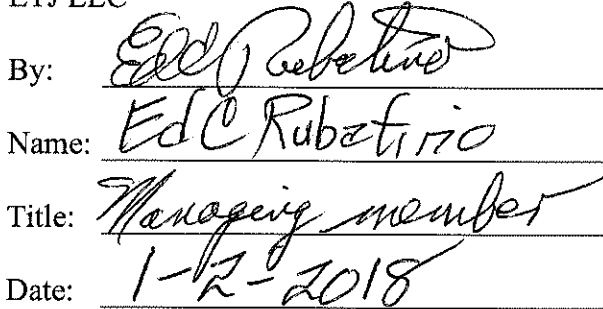 ETJ LLC
By: Ed C Rubatino
Name: Ed C Rubatino
Title: Managing member
Date: 1-2-2018